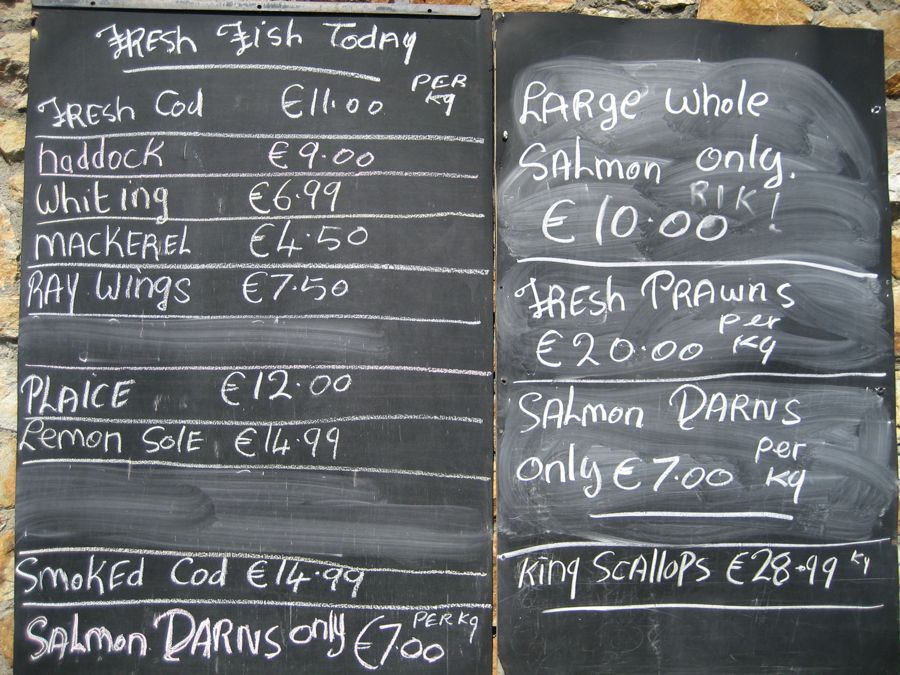 FRESH FISH TODAY
FRESH COD €11.00 PER KG
haddock €9.00
Whiting €6.99
MACKEREL €4.50
RAY WINGS €7.50
PLAICE €12.00
Lemon SOLE €14.99
SMOKED COD €14.99
SALMON DARNS only €7.00 PER KG
LARGE WHOLE
SALMON only.
€10.00
FRESH PRAWNS
€20.00 per Kg
SALMON DARNS
only €7.00 per Kg
King SCALLOPS €28.99 Kg